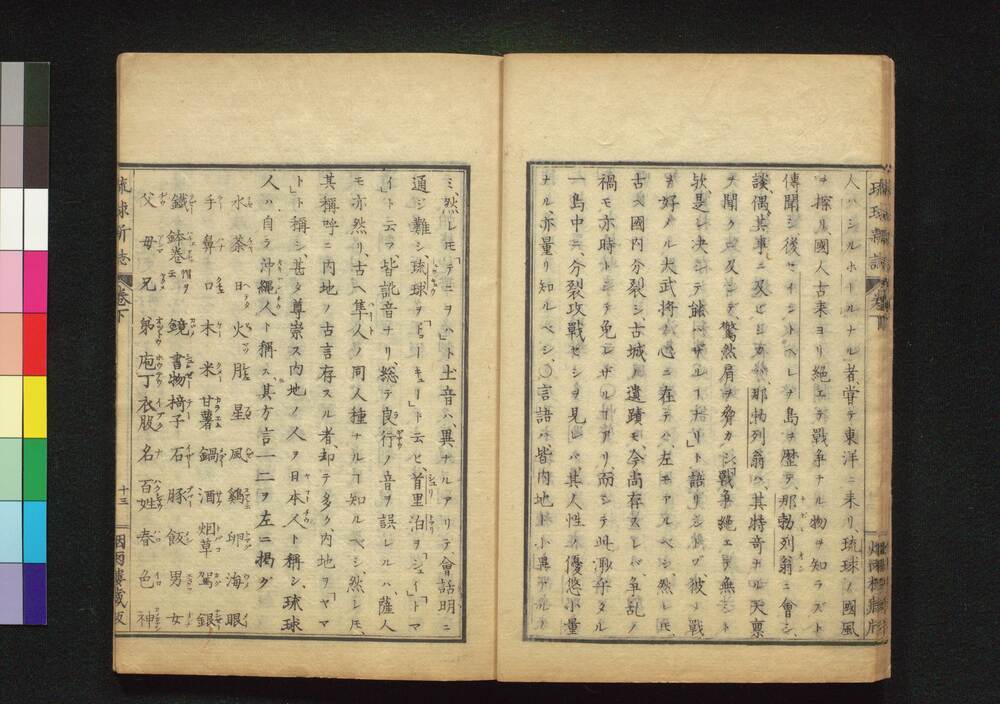 人ハシルホールナル者、嘗テ東洋ニ来リ、琉球ノ國風
ヲ探リ、國人古来ヨリ絕エテ戰争ナル物ヲ知ラズト
傳聞シ、後セイントヘレナ島ヲ歴テ、那勃列翁ニ會シ、
談偶其事ニ及ビシカバ、那勃列翁ハ、其特奇ナル天禀
ヲ聞クニ及ンデ、驚然肩ヲ脅カシ、戰争絕エテ無シト
欤、是レ決シテ能ハザルヿナリト語リシトゾ、彼ノ戰
ヲ好メル大武将ノ心ニ在テハ、左モアルベシ、然レ𪜈、
古ヘ國内分裂シ、古城ノ遺蹟モ、今尚存スレバ、争乱ノ
禍モ亦時トシテ免レザルヿアリ、而シテ此眇乎タル
一島中ニ、分裂攻戰セシヲ見レバ、其人性ノ優悠小量
ナル、亦量リ知ルベシ、○言語ハ、皆内地ト小異アルノ
琉球新誌
卷下
ミ、然レ𪜈「テニヲハ」ト土音ハ、異ナルアリテ、會話明ニ
通シ難シ、琉球ヲ「ドーキュー」ト云ヒ、首里泊ヲ「シュイ」「トマ
イ」ト云フ、皆訛音ナリ、総テ良行ノ音ヲ誤レルハ、薩人
モ亦然リ、古ヘ隼人ノ同人種ナルヿ知ルベシ、然レ𪜈、
其稱呼ニ内地ノ古言存スル者、却テ多ク、内地ヲ「ヤマ
ト」ト稱シ、甚タ尊崇ス、内地ノ人ヲ日本人ト稱シ、琉球
人ハ自ラ沖縄人ト稱ス、其方言一二ヲ左ニ揭グ
水 茶 日 火 脂 星 風 鷄 卵 海 眼
手 鼻 口 木 米 甘薯 鍋 酒 烟草 駕 銀
鐵 鉢巻 帽ヲ云 鏡 書物 椅子 石 豚 飯 男 女
父 母 兄 弟 庖丁 衣服 名 百姓 春 色 神
琉球新志
卷下
十三
烟雨樓藏版